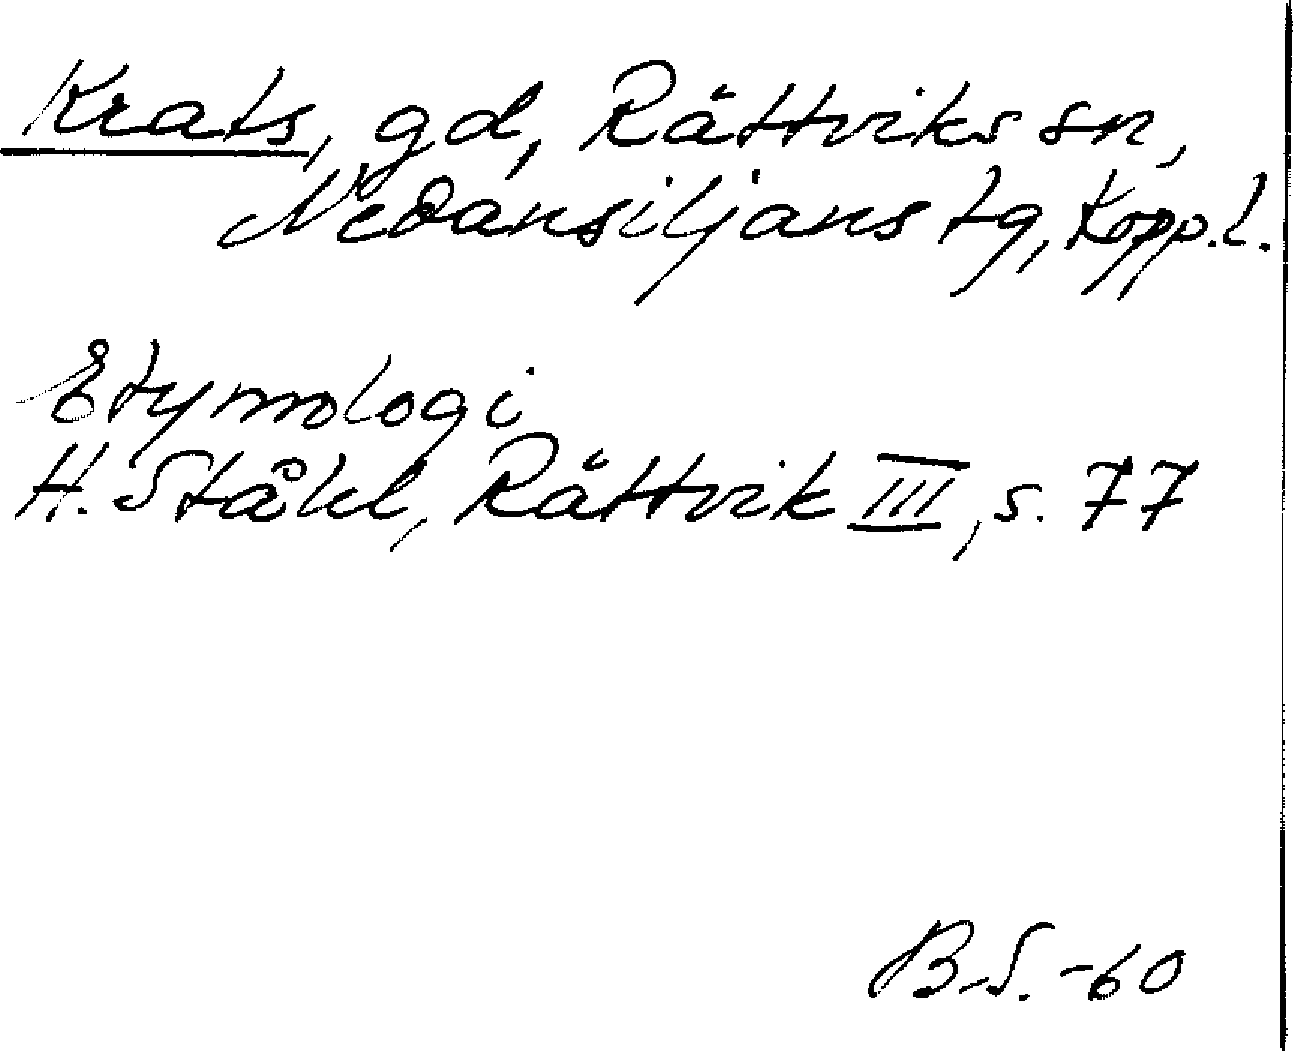 Krats, gd, Rättviks sn,
Nedansiljans tg, Kopp. l.
Etymologi
H. Ståhl, Rättvik III, s. 77
B.S. -60